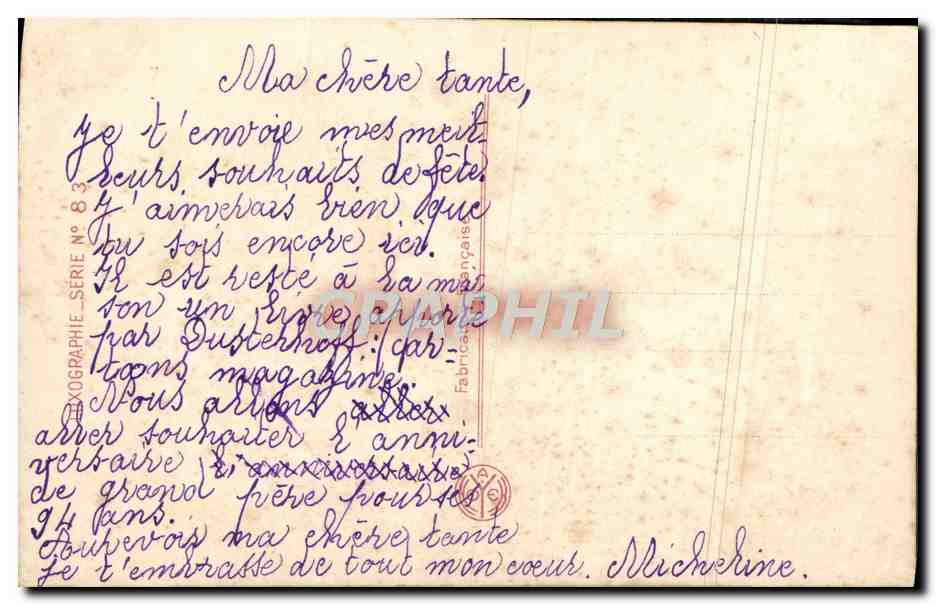 Ma chère tante,
Je t'envoie mes meil-
leurs souhaits de fête.
J'aimerais bien que
tu sois encore ici.
Il est resté à la mai
son un livre apporté
par Dusterhoff: "car-
toons magazine.
Nous allons aller
aller souhaiter l'anni-
versaire l'anniversaire
de grand père pour ses
94 ans.
Aurevoir ma chère tante
Je t'embrasse de tout mon cœur. Micheline.
LUXOGRAPHIE_SÉRIE N° 83
Fabrication Française
A
CARPHIL